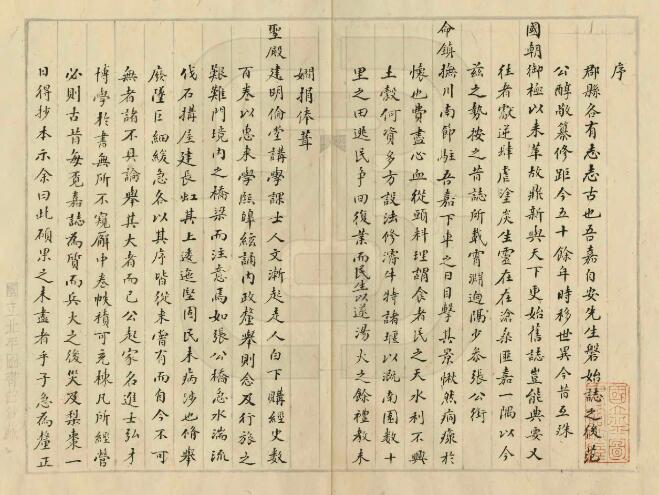 序
郡縣各有志志古也吾嘉自安先生磐始誌之後范
公醇敬纂修距今五十餘年時移世異今昔互殊
國朝御極以來革故鼎新與天下更始舊誌豈能與要又
往者獻逆肆虐塗炭生靈在在滄桑匪嘉一隅以今
茲之勢按之昔誌所載霄淵迥隔少參張公銜
命鎮撫川南節駐吾嘉下車之日目擊其景愀然痌瘝於
懷也費盡心血從頭料理謂食者民之天水利不興
土穀何資多方設法修濬牛特諸堰以溉南園數十
里之田逃民爭回復業而民生以遂湯火之餘禮教未
嫻捐俸葺
聖殿建明倫堂講學課士人文漸起走人白下購經史數
百卷以惠來學膠庠絃誦內政釐舉則念及行旅之
艱難門境內之橋梁而注意焉如張公橋急水湍流
伐石構屋建長虹其上逶迤堅固民未病涉也脩舉
廢墜巨細緩急各以其序皆從來嘗有而自今不可
無者諸不具論舉其大者而已公起家名進士弘才
博學於書無所不窺廨中卷帙積可充棟凡所經營
必則古昔每覓嘉誌為質而兵火之後災及梨棗一
日得抄本示余曰此碩果之未盡者乎子急為釐正